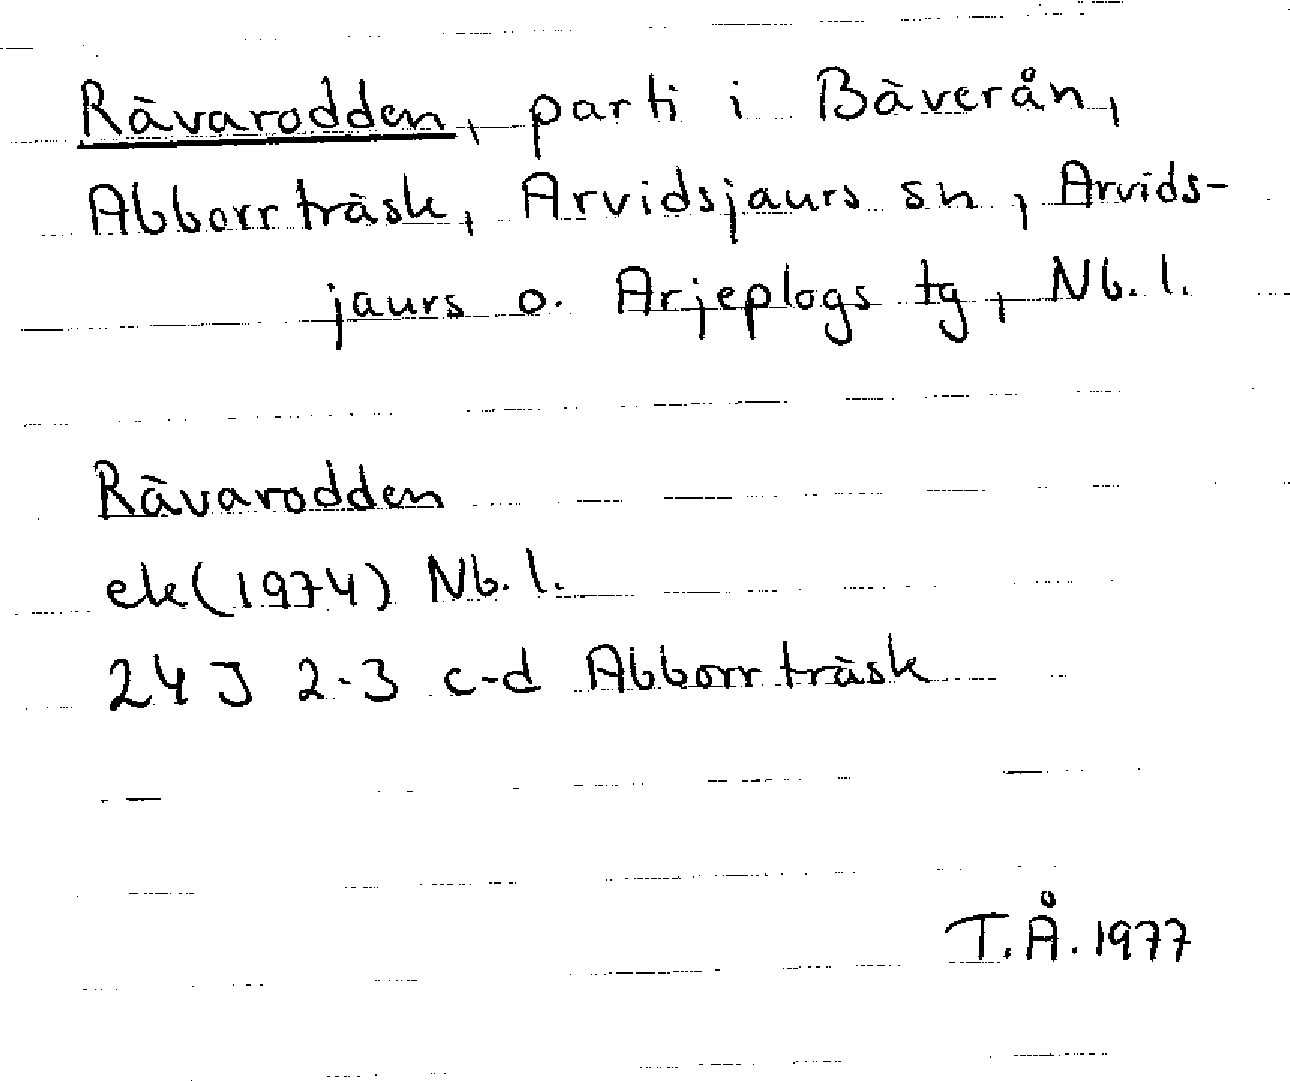 Rävarodden, parti i Bäverån,
Abborrträsk, Arvidsjaurs sn, Arvids-
jaurs o. Arjeplogs tg, Nb. l.
Rävarodden
ek (1974) Nb. l.
24 J 2-3 c-d Abborrträsk
T.Å. 1977